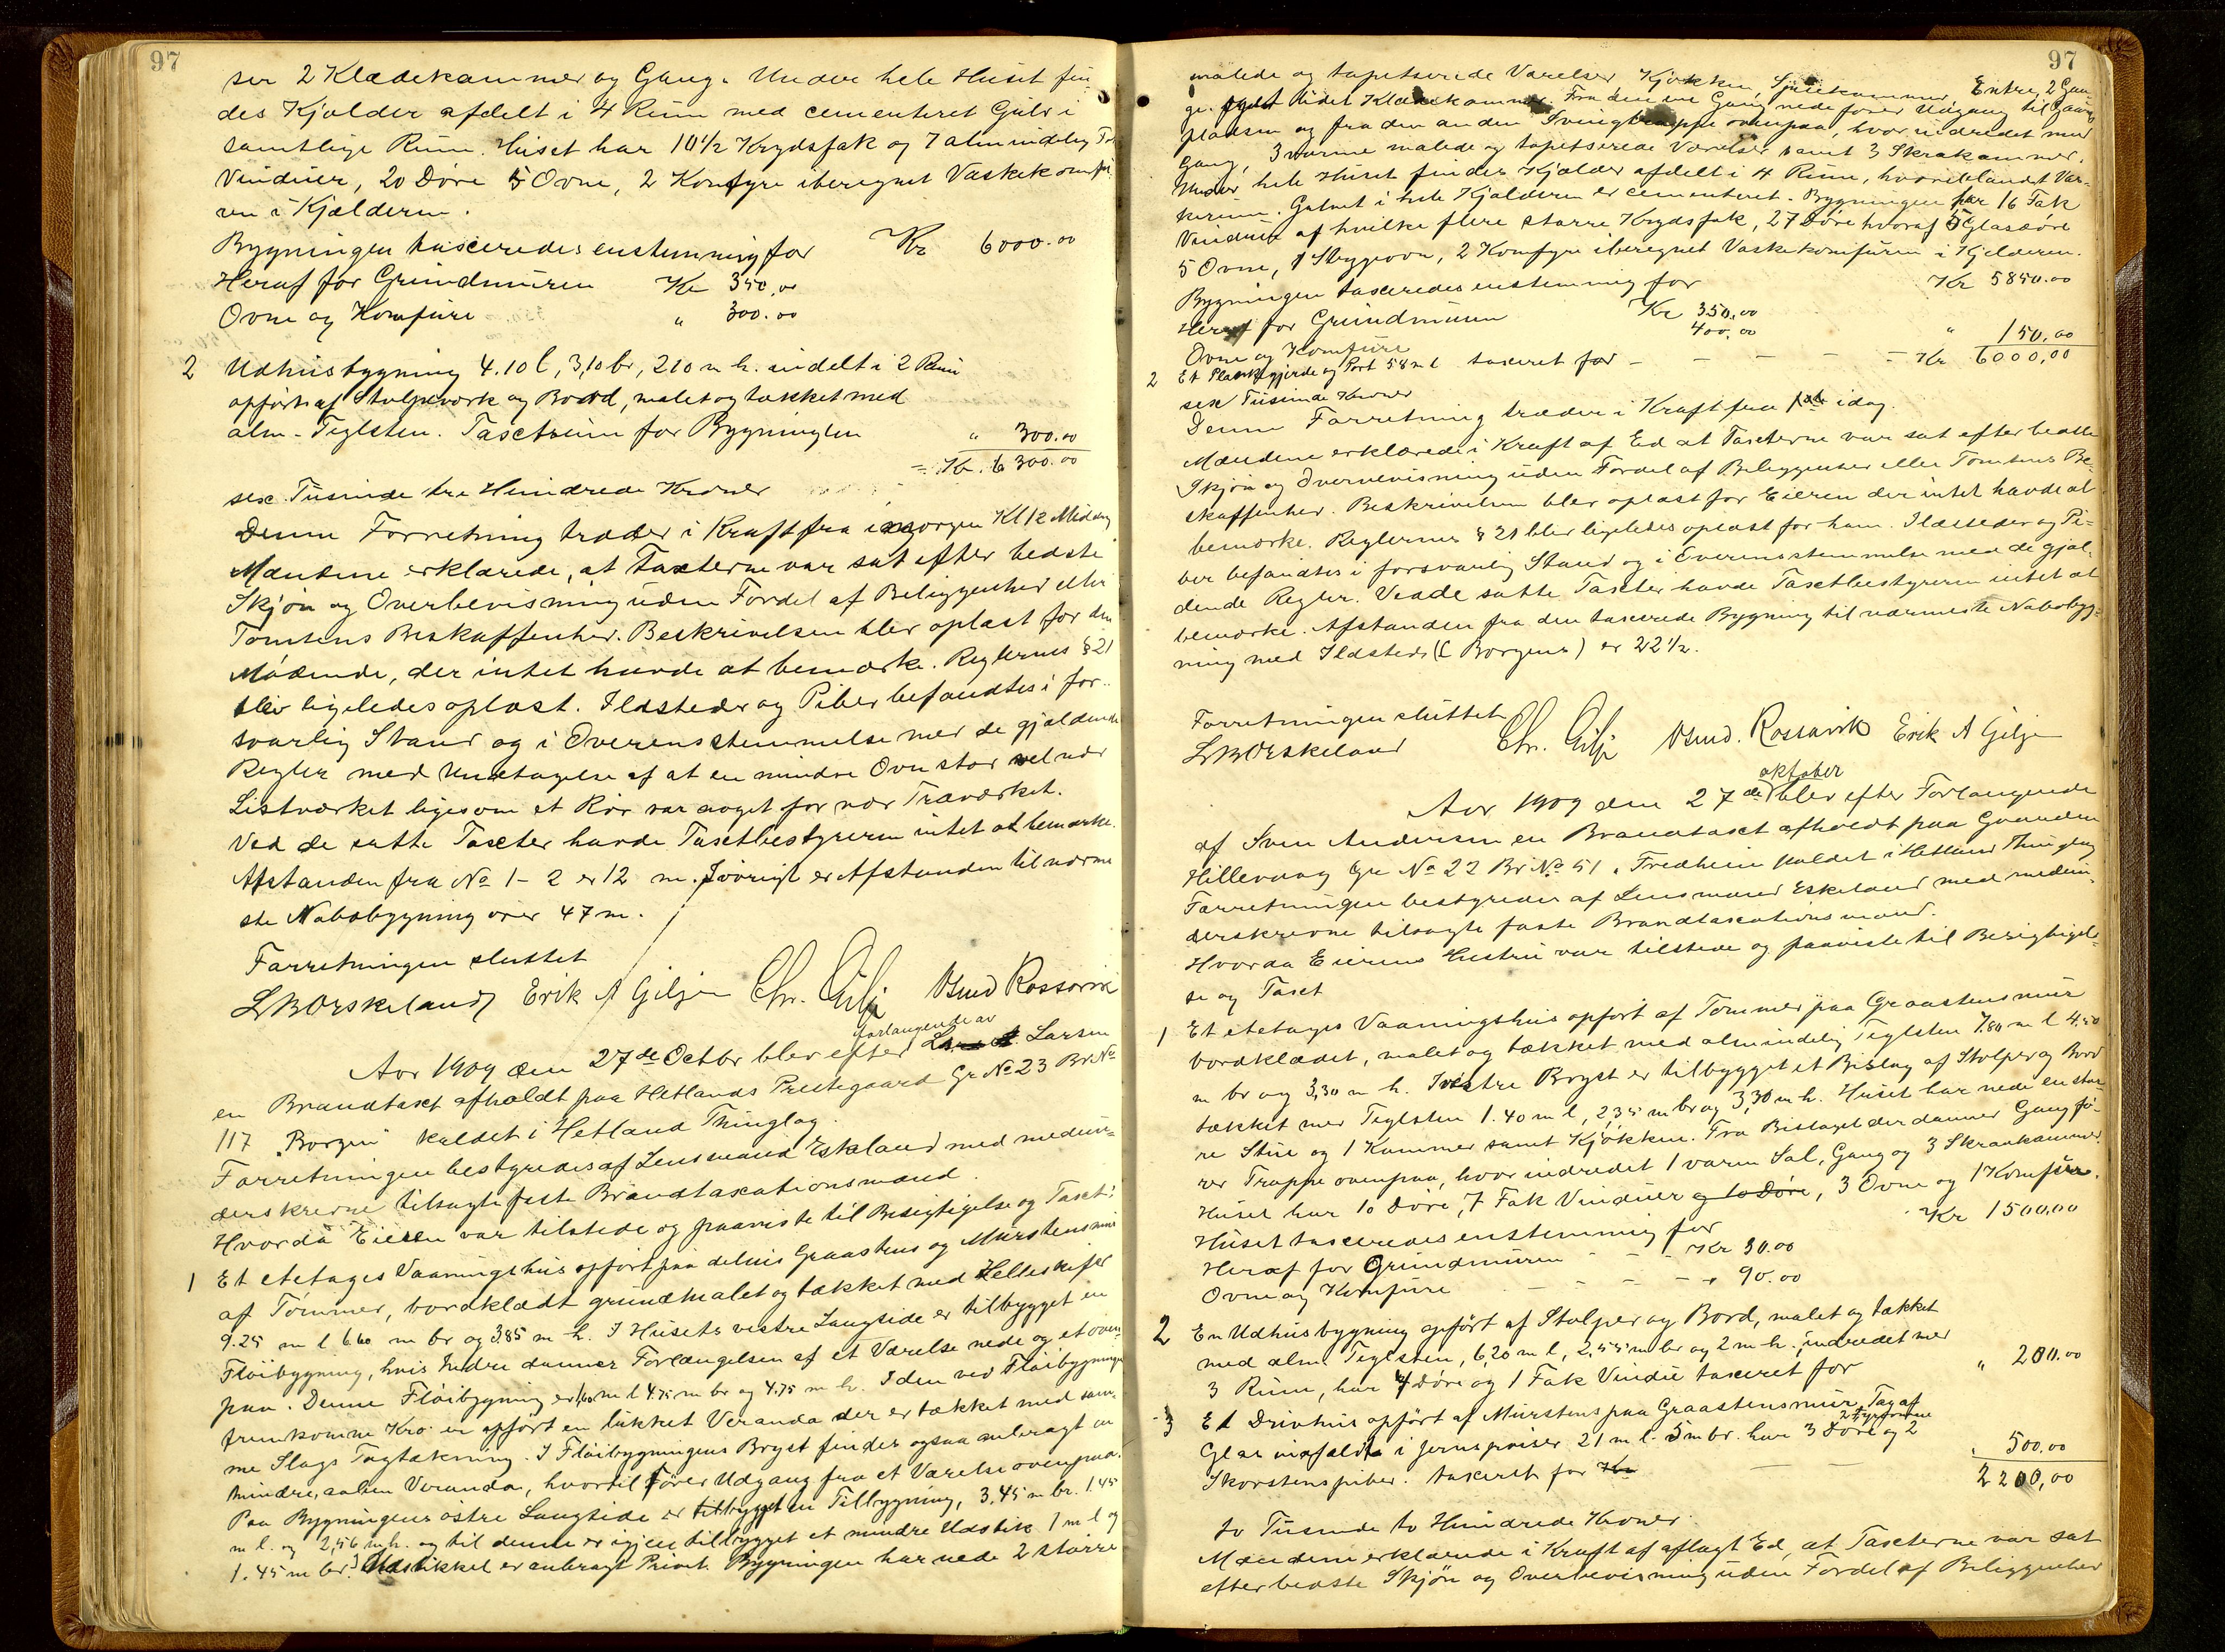 97
ser 2 Klædekammer og Gang. Under hele Huset fin
des Kjælder afdelt i 4 Rum med cementeret Gulv i
samtlige Rum. Huset har 10 1/2 Krydsfak og 7 almindelig
Vinduer, 20 Døre 5 Ovne, 2 Komfyre iberegnet Vaskekomfu
ren i Kjælderen.
Bygningen taxeredes enstemmig for Kr 6000.00
Heraf for Grundmuren Kr 350,00
Ovne og Komfure " 300.00
2 Udhusbygning 4.10 l, 3,10 br, 210 m h. indelt i 2 Rum
opført af Stolpeværk og Bord, malet og tækket med
alm. Teglsten. Taxtsum for Bygningen " 300.00
= Kr. 6300.00
sex Tusinde tre Hundrede Kroner
Denne Forretning træder i Kraft fra imorgen Kl 12 Middag
Mændene erklærede, at Taxterne var sat efter bedste
Skjøn og Overbevisning uden Fordel af Beliggenhed eller
Tomtens Beskaffenhed. Beskrivelsen blev oplæst for den
Mødende, der intet havde at bemærke. Reglernes § 21
blev ligeledes oplæst. Ildsteder og Piber befandtes i for-
svarlig Stand og i Overensstemmelse med de gjældende
Regler med Undtagelse af at en mindre Ovn stod vel nær
Listværket ligesom et Rør var noget for nær Træværket.
Ved de satte Taxter havde Taxtbestyreren intet at bemærke.
Afstanden fra No 1 - 2 er 12 m. Iøvrigt er Afstanden til nærme
ste Nabobygning over 47 m.
Forretningen sluttet
LBOEskeland Erik A Gilje Chr. Gilje Asmd Rossavik
forlangende av
Aar 1909 den 27de Octbr blev efter Larsen
en Brandtaxt afholdt paa Hetlands Prestegaard Gr No 23 Br No
117 "Borgen" kaldet i Hetland Thinglag.
Forretningen bestyredes af Lensmand Eskeland med medun-
derskrevne tilsagte faste Brandtaxationsmænd.
Hvorda Eieren var tilstede og paaviste til Besigtigelse og Taxt:
1 Et etetages Vaaningshus opført paa delvis Graastens og Murstensmur
af Tømmer, bordklædt grundmalet og tækket med Helleskifer
9.25 m l 6.60 m br og 3.85 m h. I Husets vestre Langside er tilbygget en
Fløibygning, hvis Indre danner Forlængelsen af et Værelse nede og et oven-
paa. Denne Fløibygning er 1,60 m l 4.75 m br og 4.75 m h. I den ved Fløibygningen
fremkomne Kro er opført en lukket Veranda der er tækket med sam-
me Slags Tagtækning. I Fløibygningens Bryst findes ogsaa anbragt en
mindre, aaben Veranda, hvortil fører Udgang fra et Værelse ovenpaa.
Paa Bygningens østre Langside er tilbygget en Tilbygning, 3.45 m br. 1.45
m l. og 2,56 m h. og til denne er igjen tilbygget et mindre Udstik 1 m l og
1.45 m br. I Udstikket er anbragt Privet. Bygningen har nede 2 større
97
malede og tapetserede Værelser, Kjøkken, Spisekammer, Entre, 2 Gan
ge. lidet Klædekammer. Fra den ene Gang nede fører Udgang til Gaards
pladsen og fra den anden Svingtrappe ovenpaa, hvor indredet med
Gang, 3 varme malede og tapetserede Værelser samt 3 Skraakammer.
Under hele Huset findes Kjælder afdelt i 4 Rum, hvoriblandt Vas-
kerum. Gulvet i hele Kjælderen er cementeret. Bygningen har 16 Fak
Vinduer af hvilke flere større Krydsfak, 27 Døre hvoraf 5 Glasdøre
5 Ovne, 1 Strygeovn, 2 Komfyre iberegnet Vaskekomfuren i Kjelderen.
Bygningen taxeredes enstemmig for Kr 5850.00
Heraf for Grundmuren Kr 350.00
Ovne og Komfure 400.00
2 Et Plankegjerde og Port 58 m l taxeret for " 150.00
= Kr 6000,00
sex Tusinde Kroner
Denne Forretning træder i Kraft fra idag.
Mændene erklærede i Kraft af Ed at Taxterne var sat efter bedste
Skjøn og Overbevisning uden Fordel af Beliggenhed eller Tomtens Be-
skaffenhed. Beskrivelsen blev oplæst for Eieren der intet havde at
bemærke. Reglernes § 21 blev ligeledes oplæst for ham. Ildsteder og Pi-
ber befandtes i forsvarlig Stand og i Overensstemmelse med de gjæl-
dende Regler. Ved de satte Taxter havde Taxtbestyreren intet at
bemærke. Afstanden fra den taxerede Bygning til nærmeste Nabobyg-
ning med Ildsted (C Borgens) er 22 1/2.
Forretningen sluttet
LBOEskeland Chr. Gilje Asmd. Rossavik Erik A Gilje
oktober
Aar 1909 den 27de blev efter Forlangende
af Sven Andersen en Brandtaxt afholdt paa Gaarden
Hillevaag Gr No 22 Br No 51 "Fredheim" kaldet i Hetland Thinglag
Forretningen bestyredes af Lensmand Eskeland med medun-
derskrevne tilsagte faste Brandtaxationsmænd.
Hvorda Eierens Hustru var tilstede og paaviste til Besigtigel-
se og Taxt
1 Et etetages Vaaningshus opført af Tømmer paa Graastensmur
bordklædet, malet og tækket med almindelig Teglsten 7.80 m l 4.50
m br og 3,30 m h. I vestre Bryst er tilbygget et Bislag af Stolper og Bord
tækket med Teglsten 1.40 m l, 2,35 m br og 3,30 m h. Huset har nede en stør-
re Stue og 1 Kammer samt Kjøkken. Fra Bislaget der danner Gang fø-
rer Trappe ovenpaa, hvor indredet 1 varm Sal, Gang og 3 Skraakammer.
Huset har 10 Døre, 7 Fak Vinduer og 10 Døre, 3 Ovne og 1 Komfur.
Huset taxeredes enstemmig for Kr 1500,00
Heraf for Grundmuren Kr 30.00
Ovne og Komfure " 90.00
2 En Udhusbygning opført af Stolper og Bord, malet og tækket
med alm. Teglsten, 6,20 m l, 2,55 m br og 2 m h. indredet med
3 Rum, har 4 Døre og 1 Fak Vindu taxeret for " 200.00
3 Et Drivhus opført af Murstens paa Graastensmur, Tag af
Glas indfældt i Jernsprosser 21 m l. 5 m br. har 3 Døre og 2
Skorstenspiber. taxeret for Kr " 500.00
2200,00
to Tusinde to Hundrede Kroner.
Mændene erklærede i Kraft af aflagt Ed, at Taxterne var sat
efter bedste Skjøn og Overbevisning uden Fordel af Beliggenhed